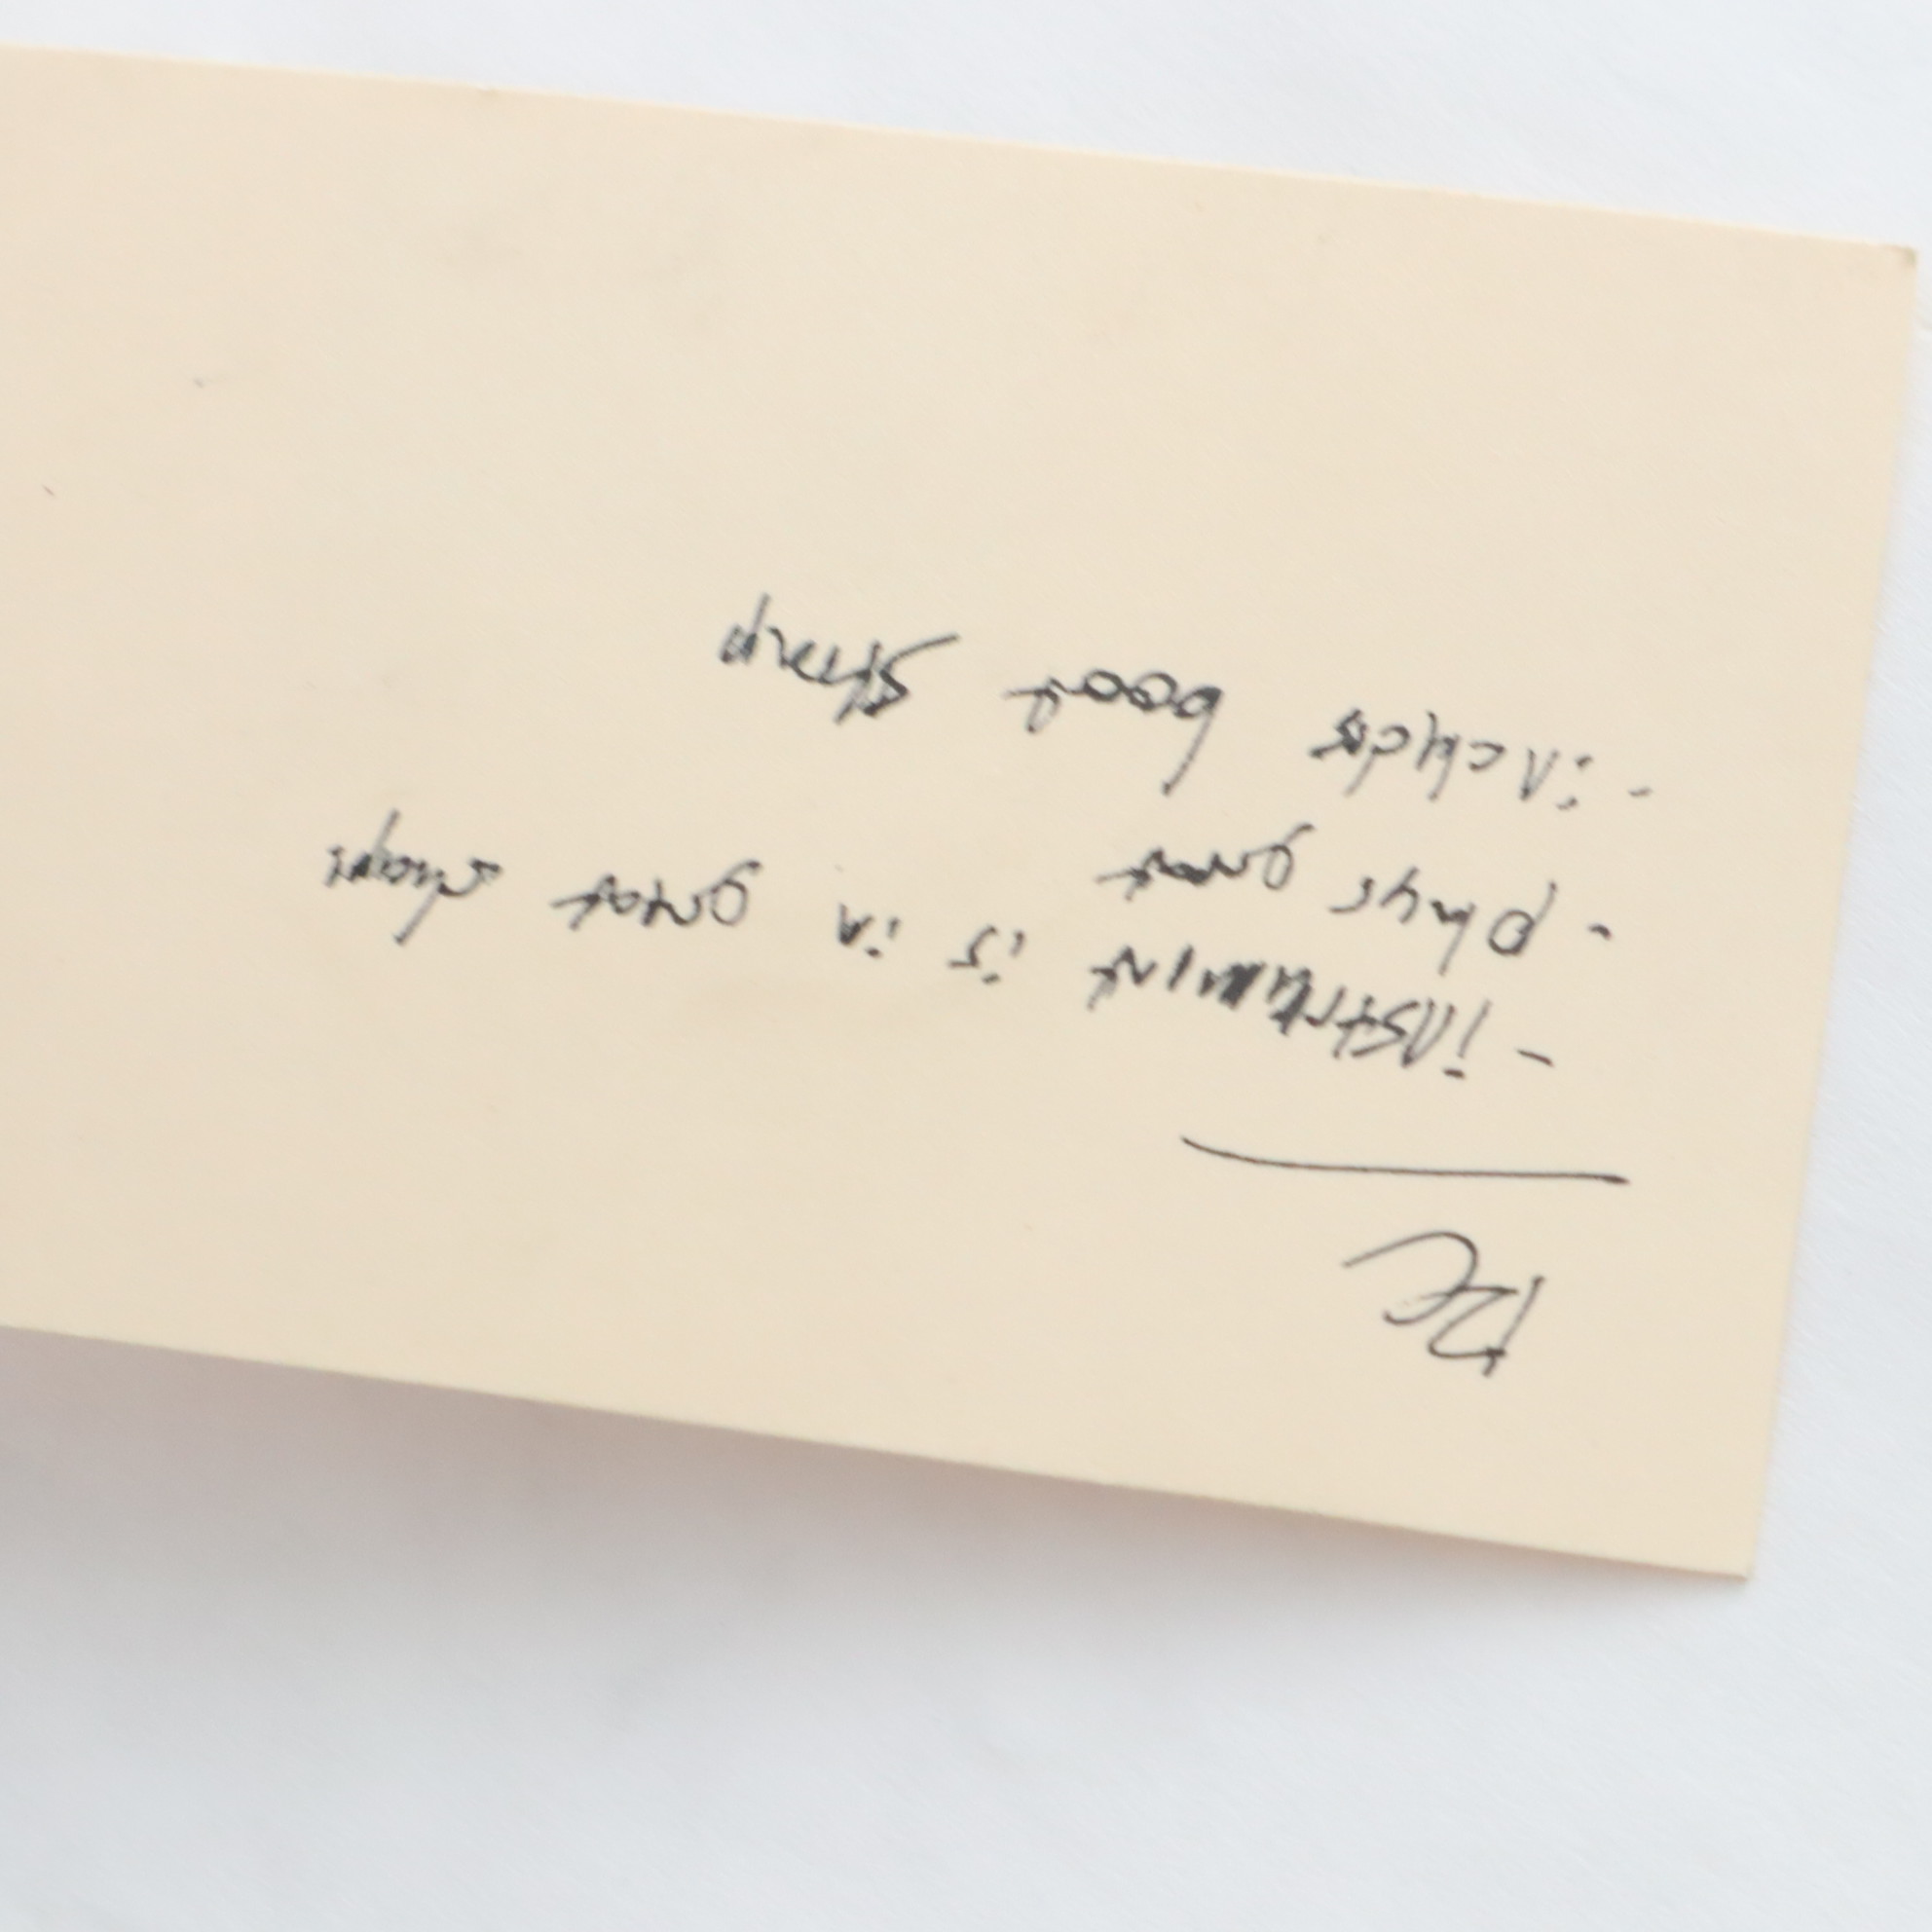 DC
- instrument is in great shape
- plays great
- includes boot strap